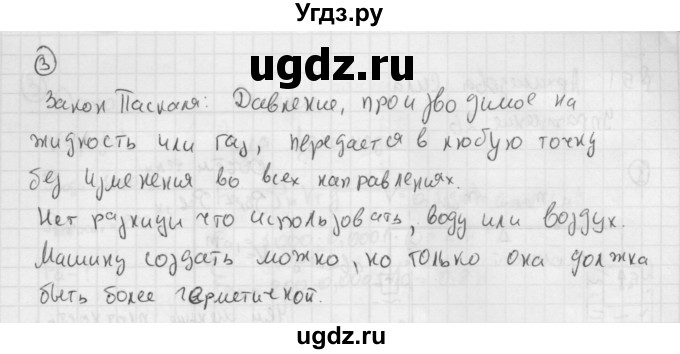 Угдз.ру
ugdz.ru
③
Закон Паскаля: Давление, производимое на
жидкость или газ, передается в любую точку
без изменения во всех направлениях.
Нет разници что использовать, воду или воздух.
Машину создать можно, но только она должна
быть более герметичной.
ugdz.ru